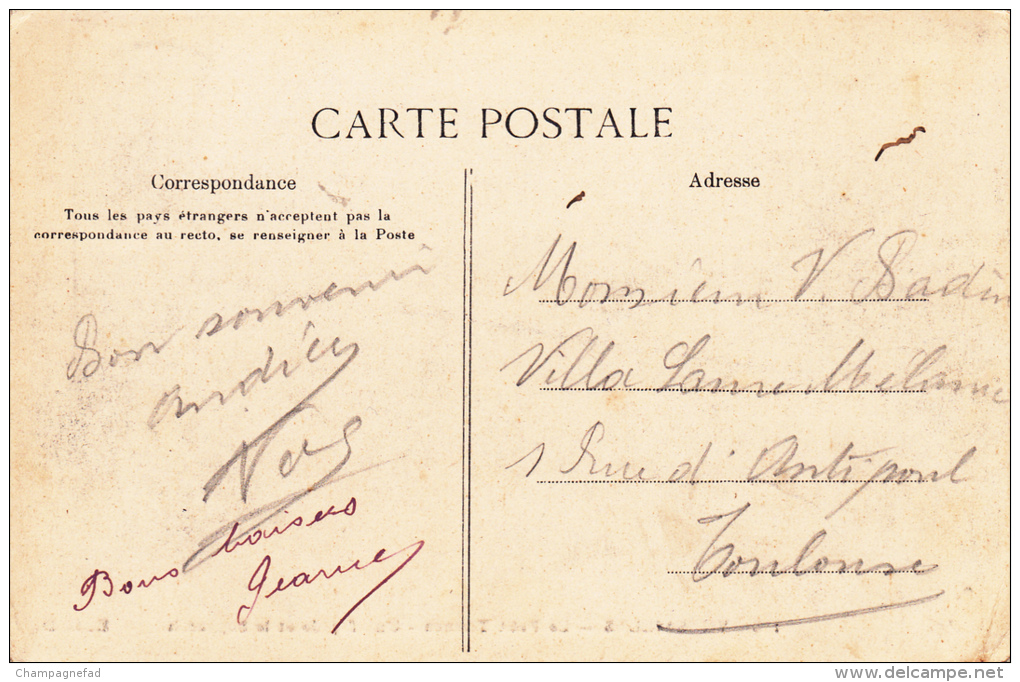 CARTE POSTALE
Correspondance
Tous les pays étrangers n'acceptent pas la
correspondance au recto, se renseigner à la Poste
Bon souvenir
Bons baisers
Jeanne
Adresse
Monsieur V. Badin
Villa Laure Mélanie
1 Rue d'Antipoul
Toulouse
Champagnefad
www.delcampe.net